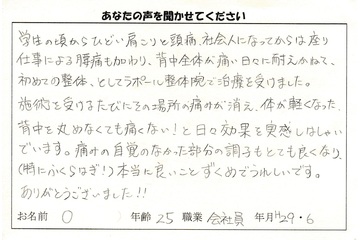 あなたの声を聞かせてください
学生の頃からひどい肩こりと頭痛、社会人になってからは座り
仕事による腰痛も加わり、背中全体が痛い日々に耐えかねて、
初めての整体、としてラポール整体院で治療を受けました。
施術を受けるたびにその場所の痛みが消え、体が軽くなった、
背中を丸めなくても痛くない!と日々効果を実感しぱなし
でいます。痛みの自覚のなかった部分の調子もとても良くなり、
(特にふくらはぎ!)本当に良いことずくめでうれしいです。
ありがとうございました!!
お名前 O 年齢 25 職業 会社員 年月 H29・6